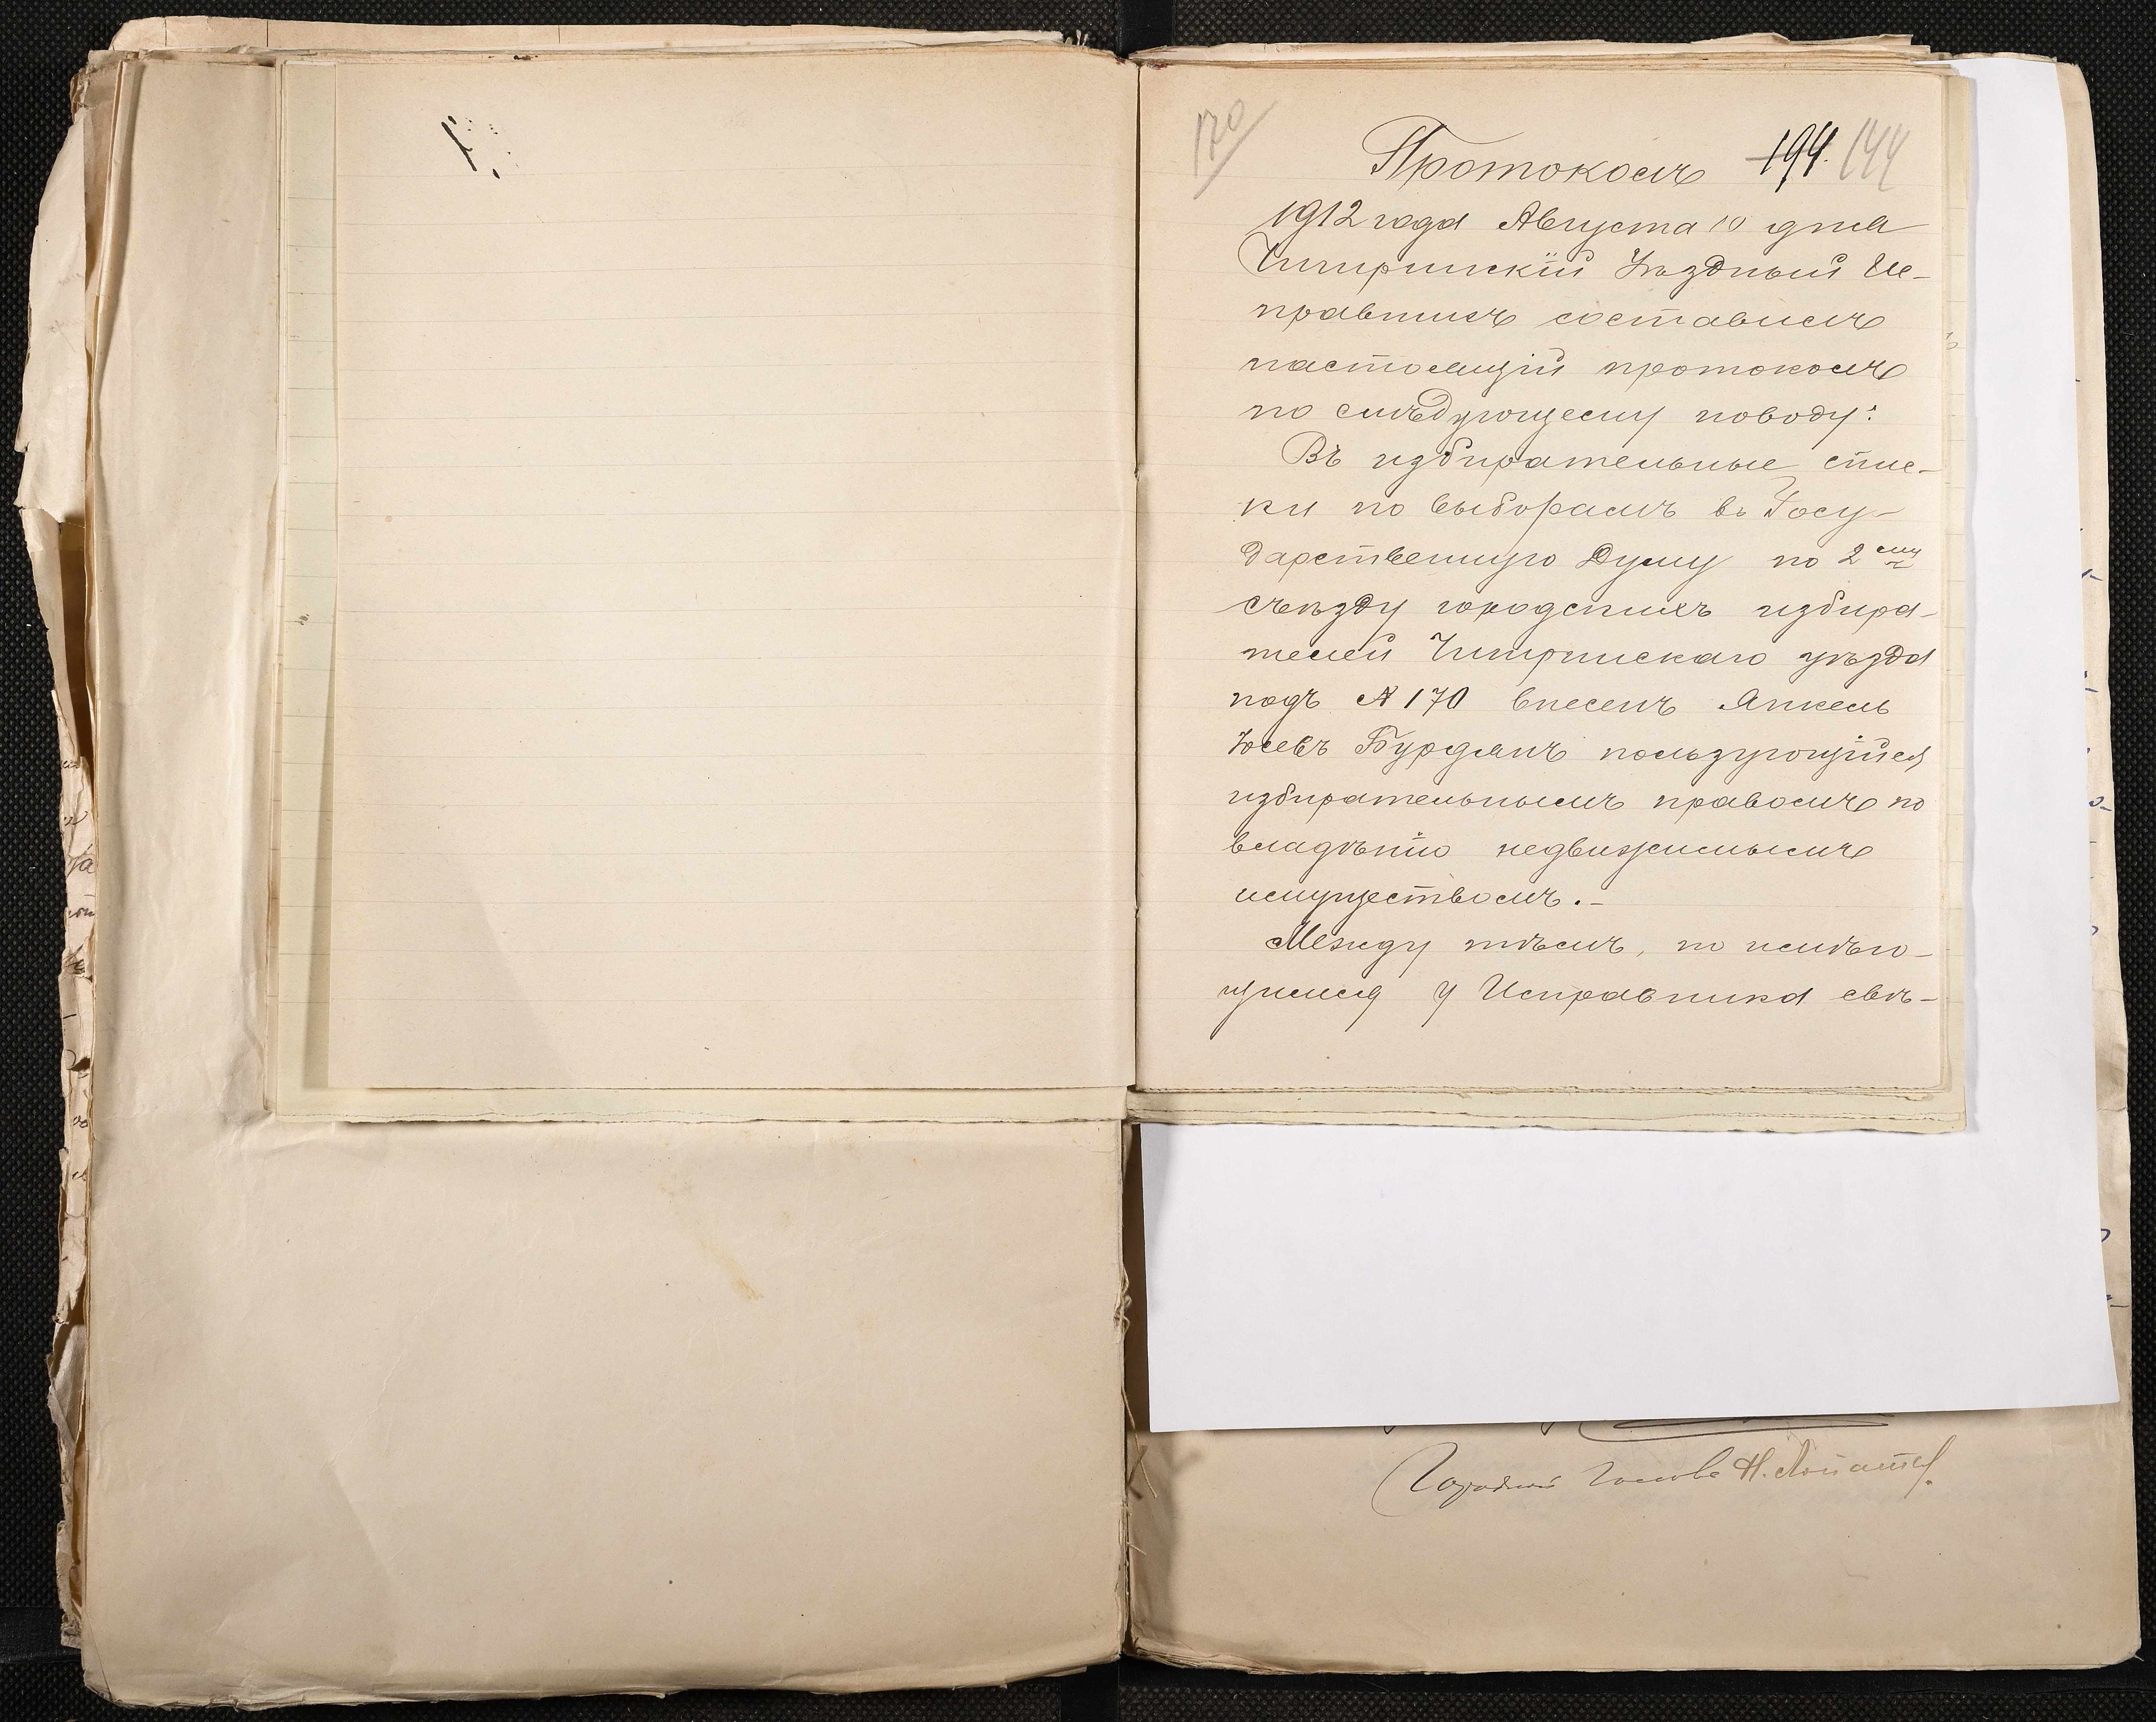 170
Протоколъ 194. 144
1912 года Августа 10 дня
Чигиринскій Уѣздный Ис-
правникъ составилъ
настоящій протоколъ
по слѣдующему поводу:
Въ избирательные спис-
ки по выборамъ въ Госу-
дарственную Думу по 2 му
съѣзду городскихъ избира-
телей Чигиринскаго уѣзда
подъ № 170 внесенъ Янкель
Іосевъ Бурдманъ пользующійся
избирательнымъ правомъ по
владѣнію недвижимымъ
имуществомъ.-
Между тѣмъ, по имѣю-
щимся у Исправника свѣ-
Городской Голова Н.